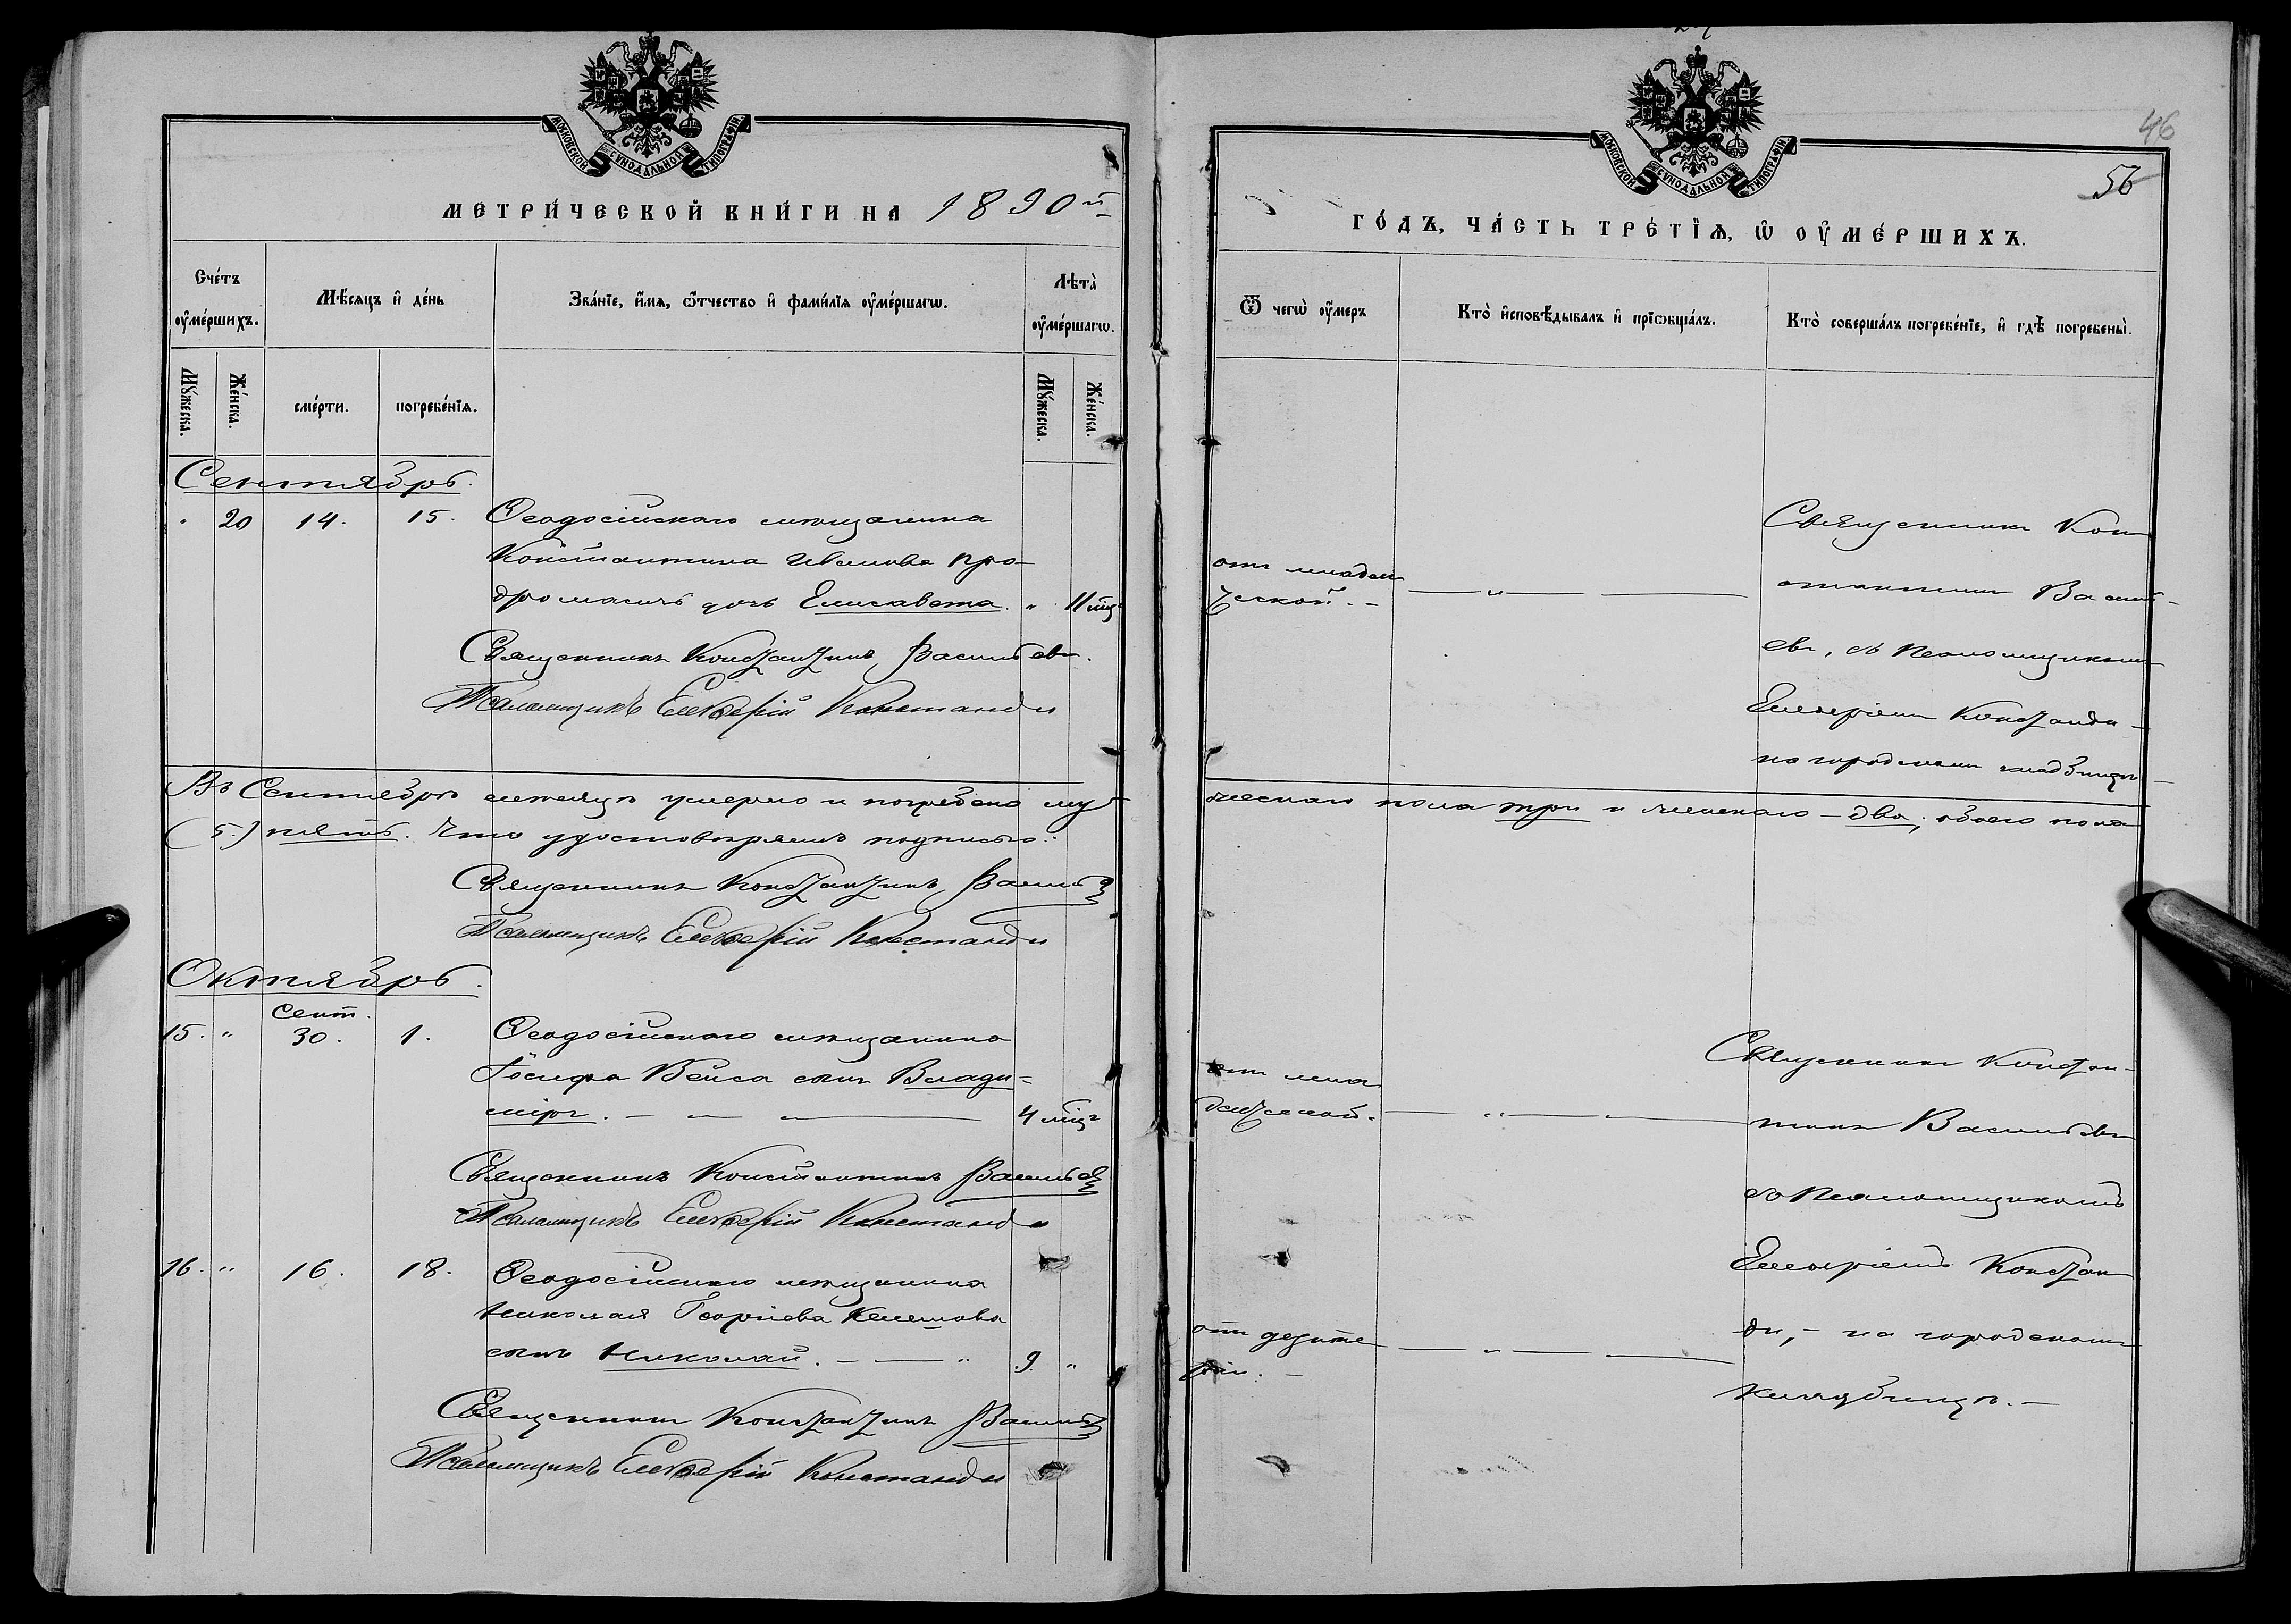 МОСКОВСКОЙ СѴНОДАЛЬНОЙ ТИПОГРАФІИ
МЕТРИ́ЧЕСКОЙ КНИ́ГИ НА 1890й
Сче́тъ оу҆ме́ршихъ.
Мѣ́сяцъ и҆ де́нь
Зва́нїе, и҆́мя, ѻ҆́тчество и҆ фами́лїя оу҆ме́ршагѡ.
Лѣта̀ оу҆ме́ршагѡ.
Мꙋ́жеска.
Же́нска.
сме́рти.
погребе́нїѧ.
Мꙋ́жеска.
Же́нска.
Сентябрь.
" 20 14. 15. Ѳеодосійскаго мѣщанина
Константина Иванова Про-
дромаличъ дочь Елисавета. " 11 мц
Священникъ Константинъ Васильевъ.
Псаломщикъ Елевѳерій Константи
Въ Сентябрѣ мѣсяцѣ умерло и погребено му-
(5.) пять. Что удостовѣряемъ подписью:
Священникъ Константинъ Василь
Псаломщикъ Елевѳерій Константи
Октябрь.
15. " Сент. 30. 1. Ѳеодосійскаго мѣщанина
Іосифа Вейса сынъ Влади=
міръ. 4 мц
Священникъ Константинъ Васильев
Псаломщикъ Елевѳерій Константи
16. " 16. 18. Ѳеодосійскаго мѣщанина
Николая Георгіева Келешова
сынъ Николай. " 9. "
Священникъ Константинъ Василь
Псаломщикъ Елевѳерій Константи
46
56
МОСКОВСКОЙ СѴНОДАЛЬНОЙ ТИПОГРАФІИ
ГО́ДЪ, ЧА́СТЬ ТРЕ́ТЇѦ, Ѽ ОУ҆МЕ́РШИХЪ.
Ѿ чегѡ̀ оу҆́меръ
Кто̀ и҆сповѣ́дывалъ и҆ прїѡбща́лъ.
Кто̀ соверша́лъ погребе́нїе, и҆ гдѣ̀ погребены̀.
отъ младен
ческой. –
"
Священникъ Кон
стантинъ Василь-
евъ, съ Псаломщикомъ
Елевѳеріемъ Константи –
на городскомъ кладбищѣ. –
жескаго пола три и женскаго – два; обоего пола
отъ мла
денческой.
"
Священникъ Констан-
тинъ Васильевъ
съ Псаломщикомъ
Елевѳеріемъ Констан
ди, – на городскомъ
кладбищѣ. –
отъ дезинте
ріи. –
"